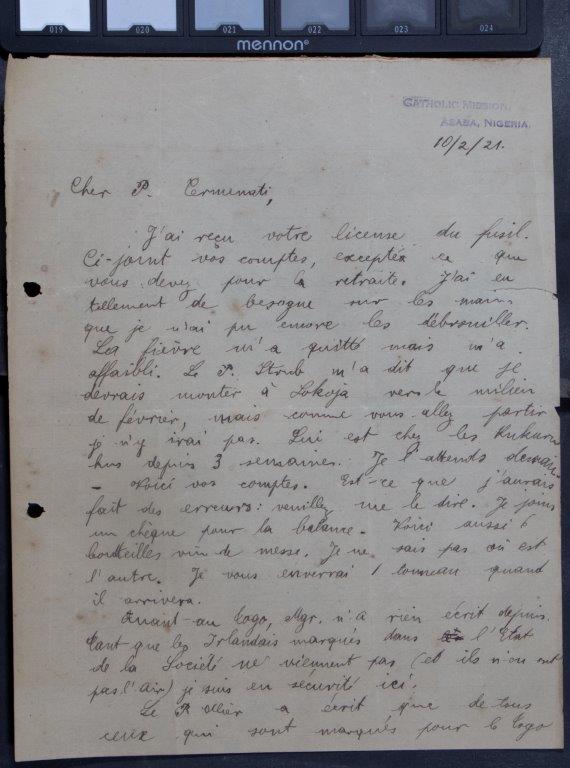 019 020 021 022 023 024
mennon®
CATHOLIC MISSION,
ASABA, NIGERIA.
10/2/21.
Cher P. Ermenati,
J'ai reçu votre license du fusil.
Ci-joint vos comptes, exceptée ce que
vous devez pour la retraite. J'ai eu
tellement de besogne sur les mains
que je n'ai pu encore les débrouiller.
La fièvre m'a quitté mais m'a
affaibli. Le P. Strub m'a dit que je
devrais monter à Lokoja vers le milieu
de février, mais comme vous allez partir
je n'y irai pas. Lui est chez les Kukuru
kus depuis 3 semaines. Je l'attends demain
- Voici vos comptes. Est-ce que j'aurais
fait des erreurs: veuillez me le dire. Je joins
un chèque pour la balance. Voici aussi 6
bouteilles vin de messe. Je ne sais pas où est
l'autre. Je vous enverrai 1 tonneau quand
il arrivera.
Quant-au Togo, Mgr. n'a rien écrit depuis.
Tant que les Irlandais marqués dans l'Etat
de la Société ne viennent pas (et ils n'en ont
pas l'air) je suis en sécurité ici.
Le P. a écrit que de tous
ceux qui sont marqués pour le Togo